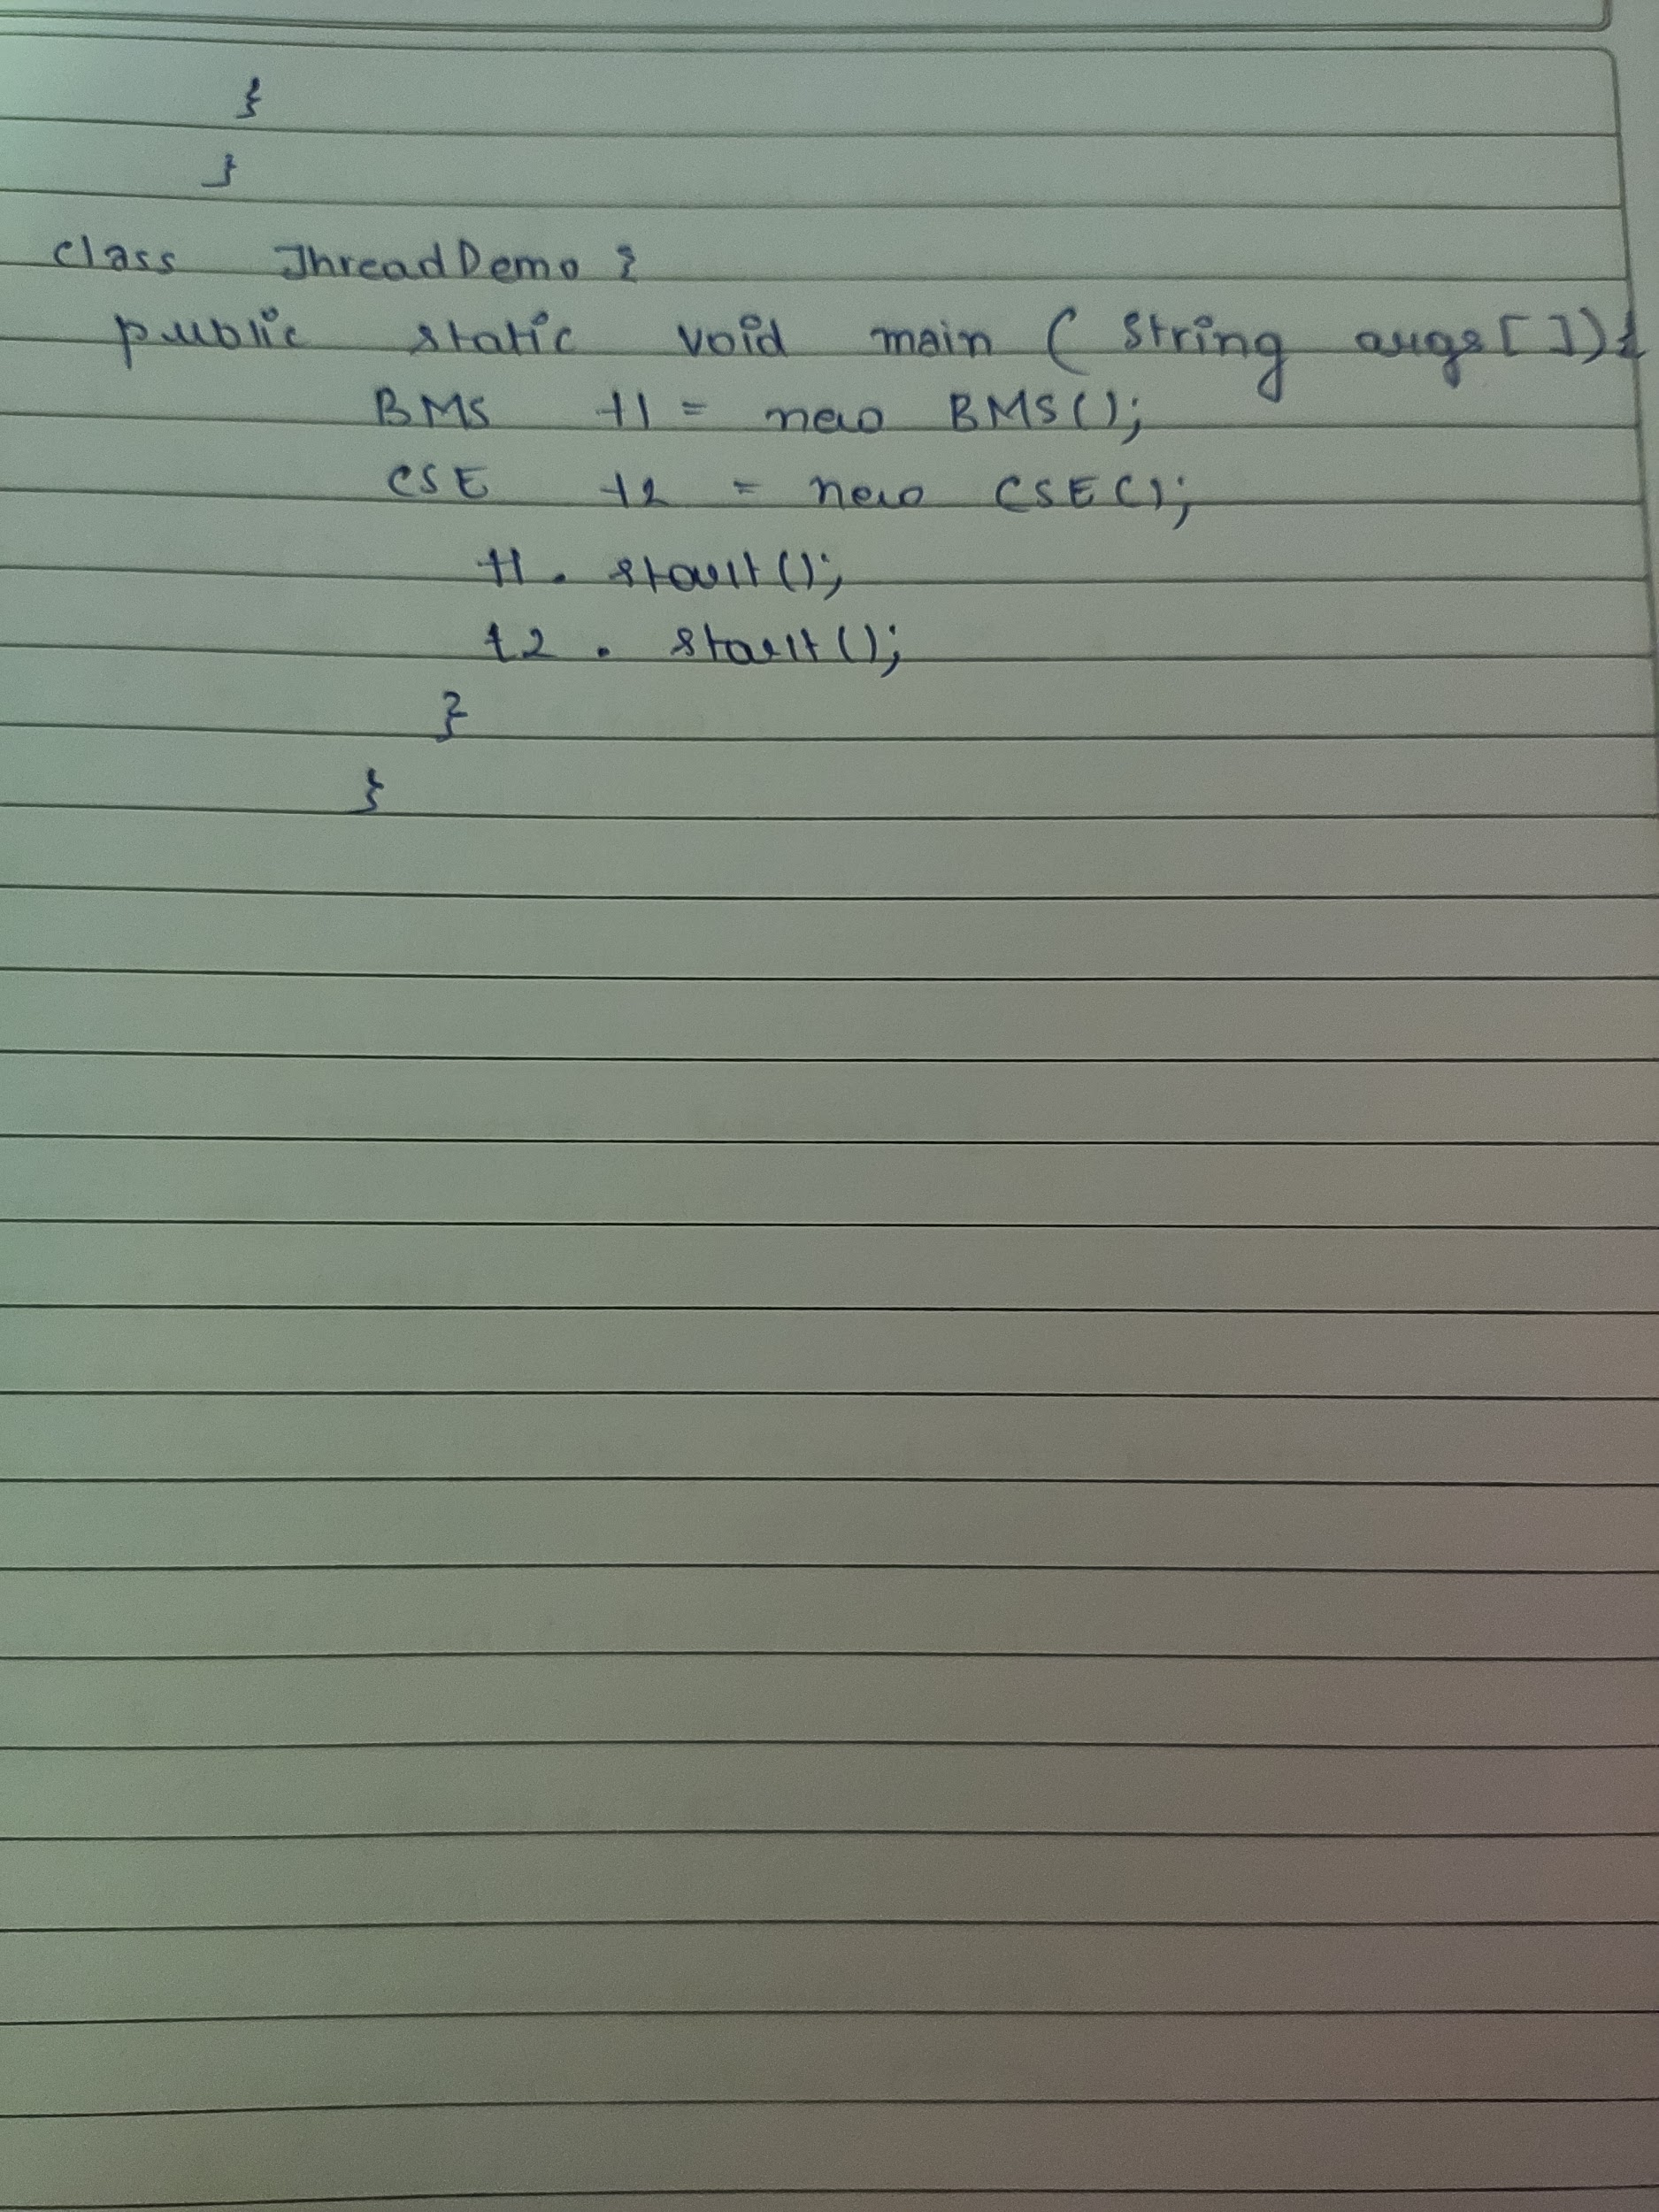 }
}
class ThreadDemo {
public static void main ( String args [ ]) {
BMS t1 = new BMS();
CSE t2 = new CSE();
t1 . start();
t2 . start();
}
}